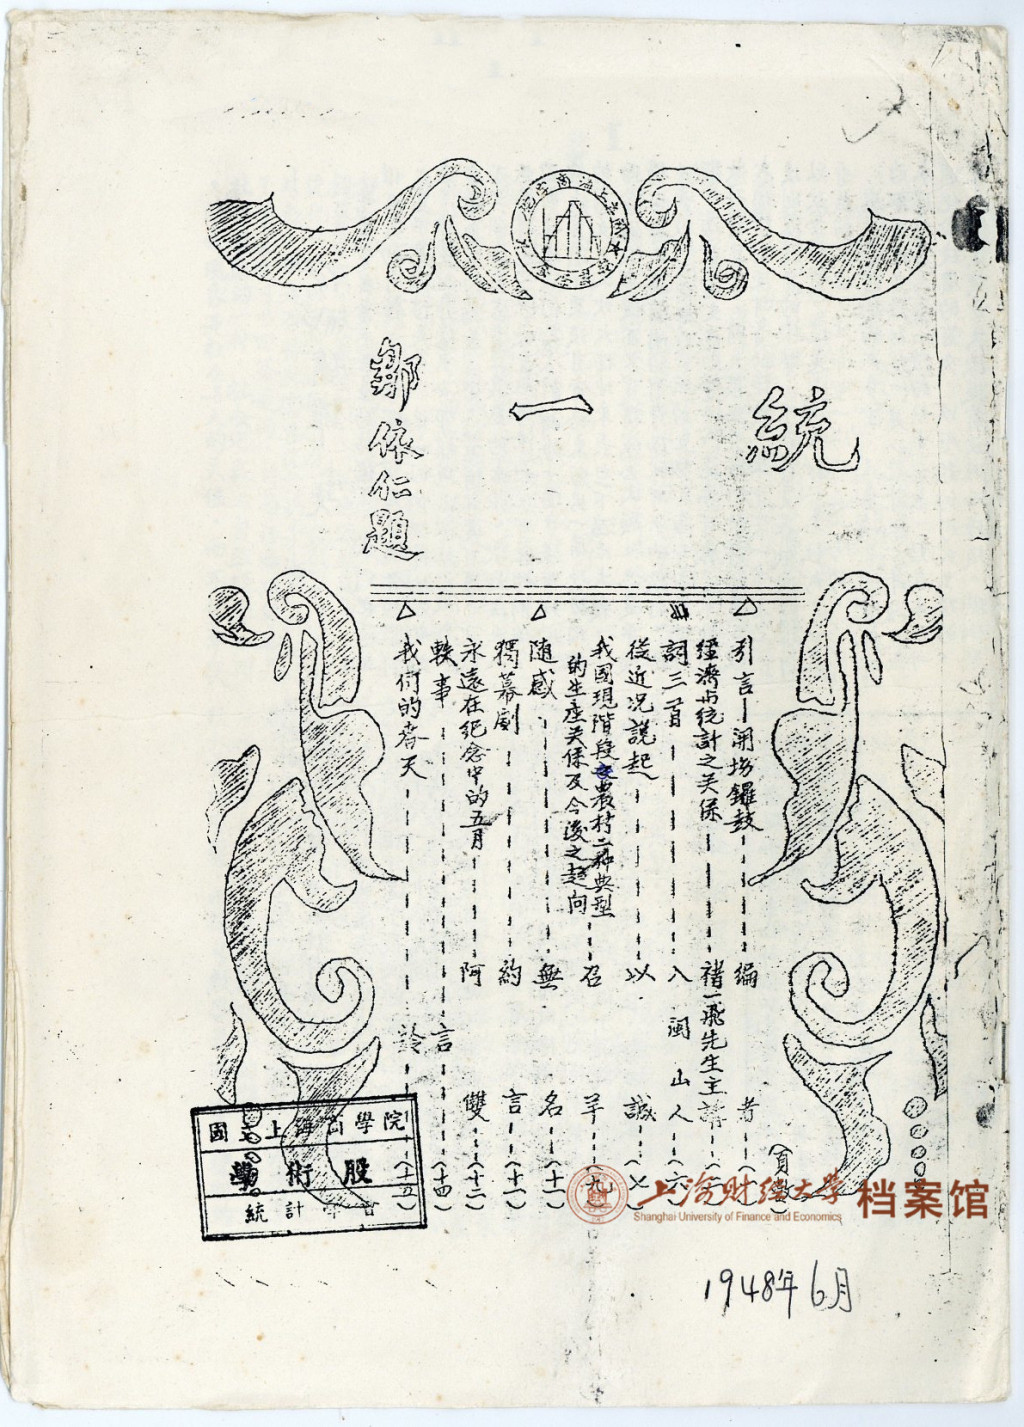 統一
鄒依仁題
(頁數)
引言—開場鑼鼓 編者
經濟與統計之关係 褚一飛先生主講
詞三首 入闽山人 (六)
從近况說起 以誠 (七)
我國現階段農村二种典型
的生產关係及今後之趋向 召羊 (九)
随感 無名 (十一)
獨幕劇 約言 (十一)
永遠在紀念中的五月 阿雙 (十二)
軼事 言 (十四)
我们的春天 (十五)
國立上海商學院
學術股
統計學會
上海财经大学 档案馆
Shanghai University of Finance and Economics
1948年6月